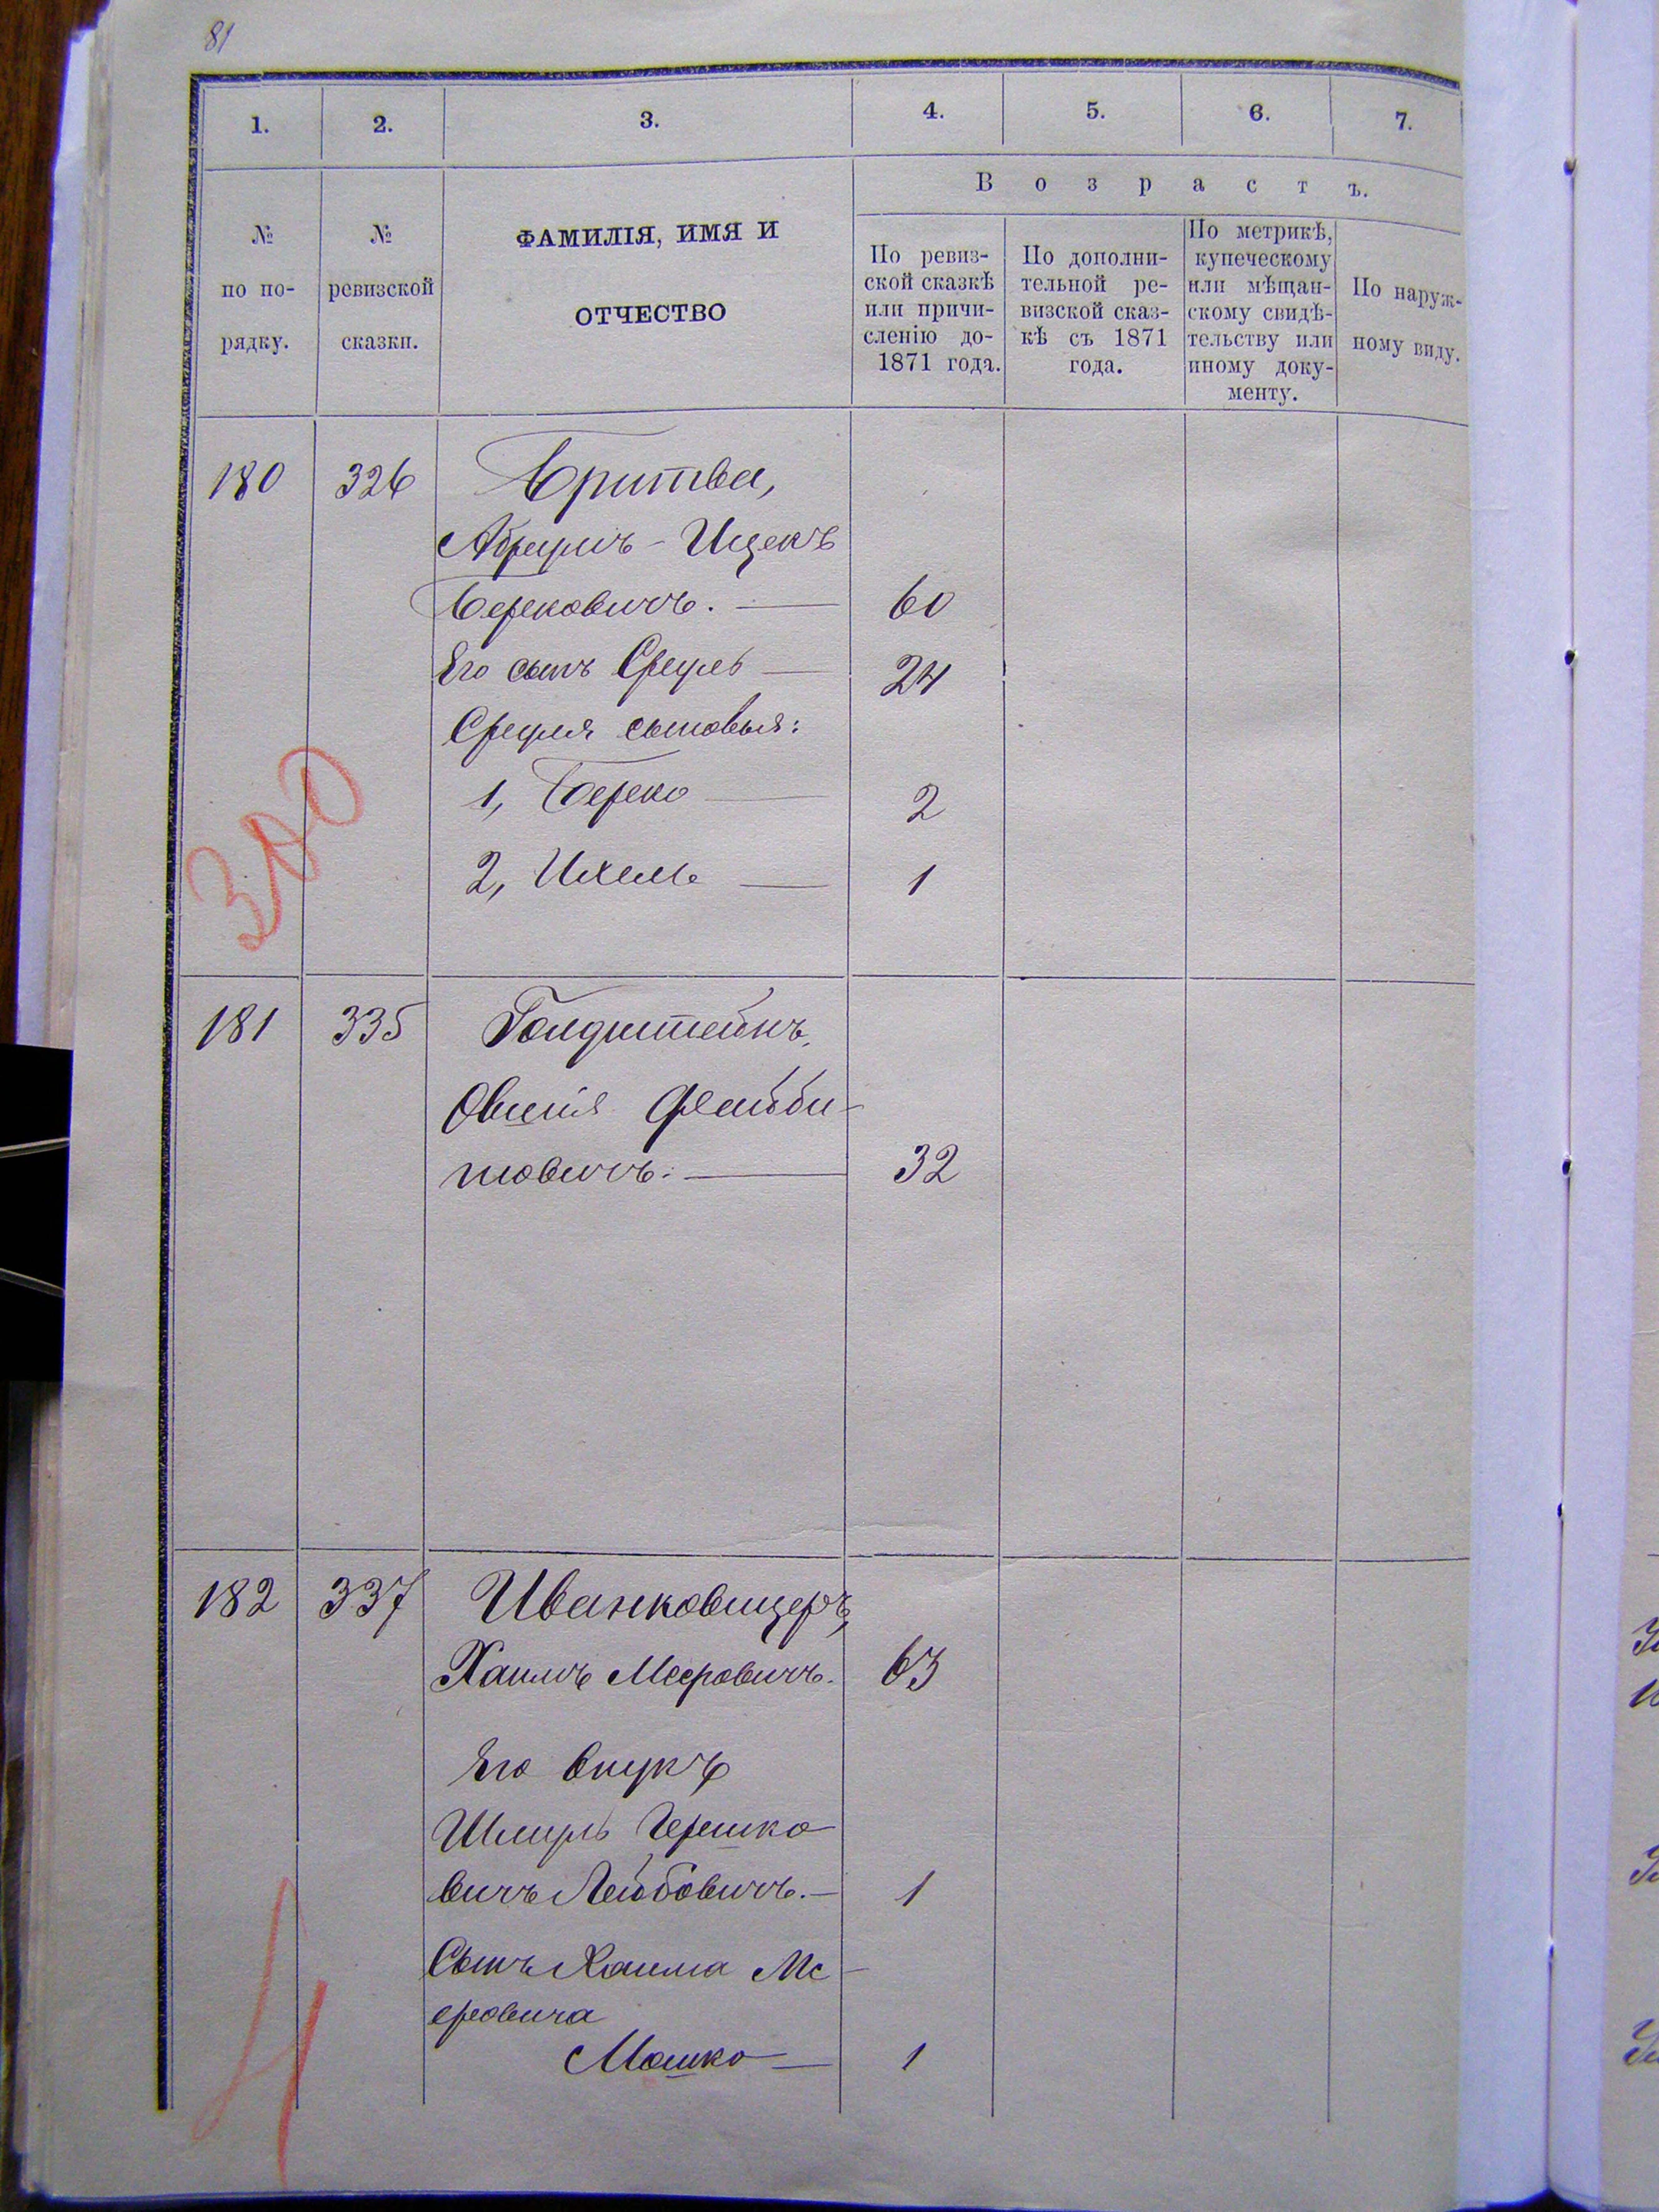 81
1. 2. 3. 4. 5. 6. 7.
Возрастъ.
№ по по-рядку.
№ ревизской сказки.
ФАМИЛІЯ, ИМЯ И
ОТЧЕСТВО
По ревиз-
ской сказкѣ
или причи-
сленію до-
1871 года.
По дополни-
тельной ре-
визской сказ-
кѣ съ 1871
года.
По метрикѣ,
купеческому
или мѣщан-
скому свидѣ-
тельству или
иному доку-
менту.
По наруж-
ному виду.
180 326 Бритва,
Абрумъ - Ицекъ
Берковичъ. — 60
Его сынъ Сруль — 24
Сруля сыновья:
1, Берко — 2
2, Ихель — 1
300
181 335 Голдштейнъ,
Овшія Фейби-
шовичъ. — 32
182 337 Иванковицеръ,
Хаимъ Мееровичъ. 63
Его внукъ
Шмуль Гершко
вичъ Лейбовичъ. — 1
Сынъ Хаима Ме-
еровича
Мошко — 1